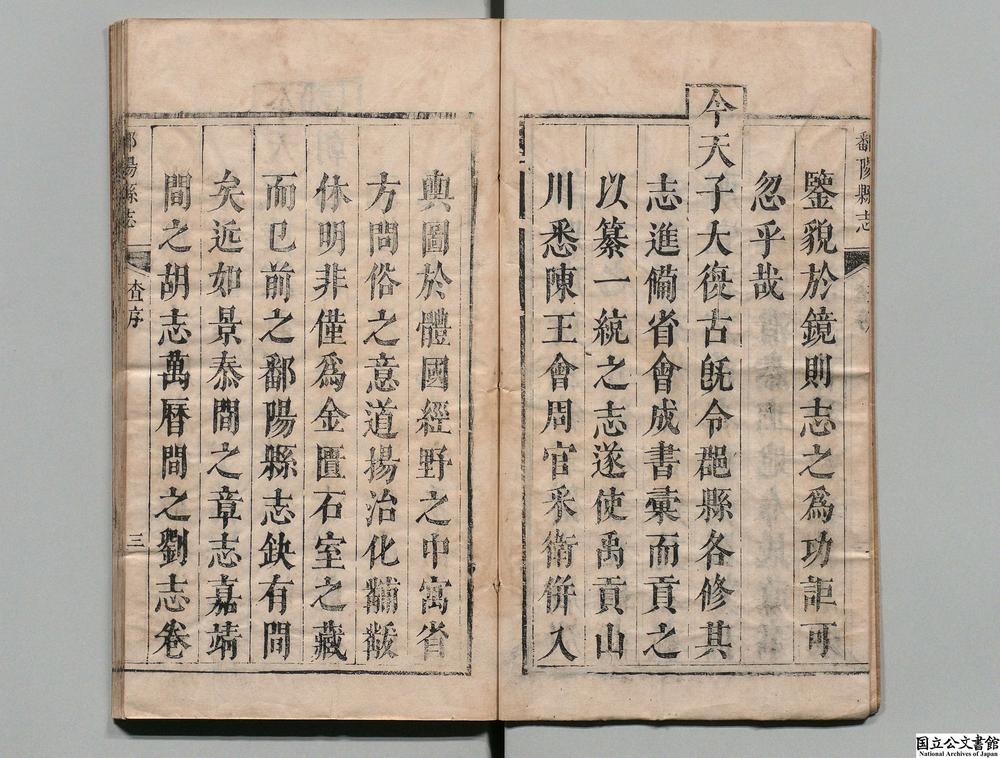 鄱陽縣志
鑒貌於鏡則志之爲功詎可
忽乎哉
今天子大復古旣令郡縣各修其
志進備省會成書彙而貢之
以纂一統之志遂使禹貢山
川悉陳王會周官采衛併入
輿圖於體國經野之中寓省
方問俗之意道揚治化黼黻
休明非僅爲金匱石室之藏
而已前之鄱陽縣志鈌有間
矣近如景泰間之章志嘉靖
間之胡志萬曆間之劉志卷
鄱陽縣志
查序
三
国立公文書館
National Archives of Japan